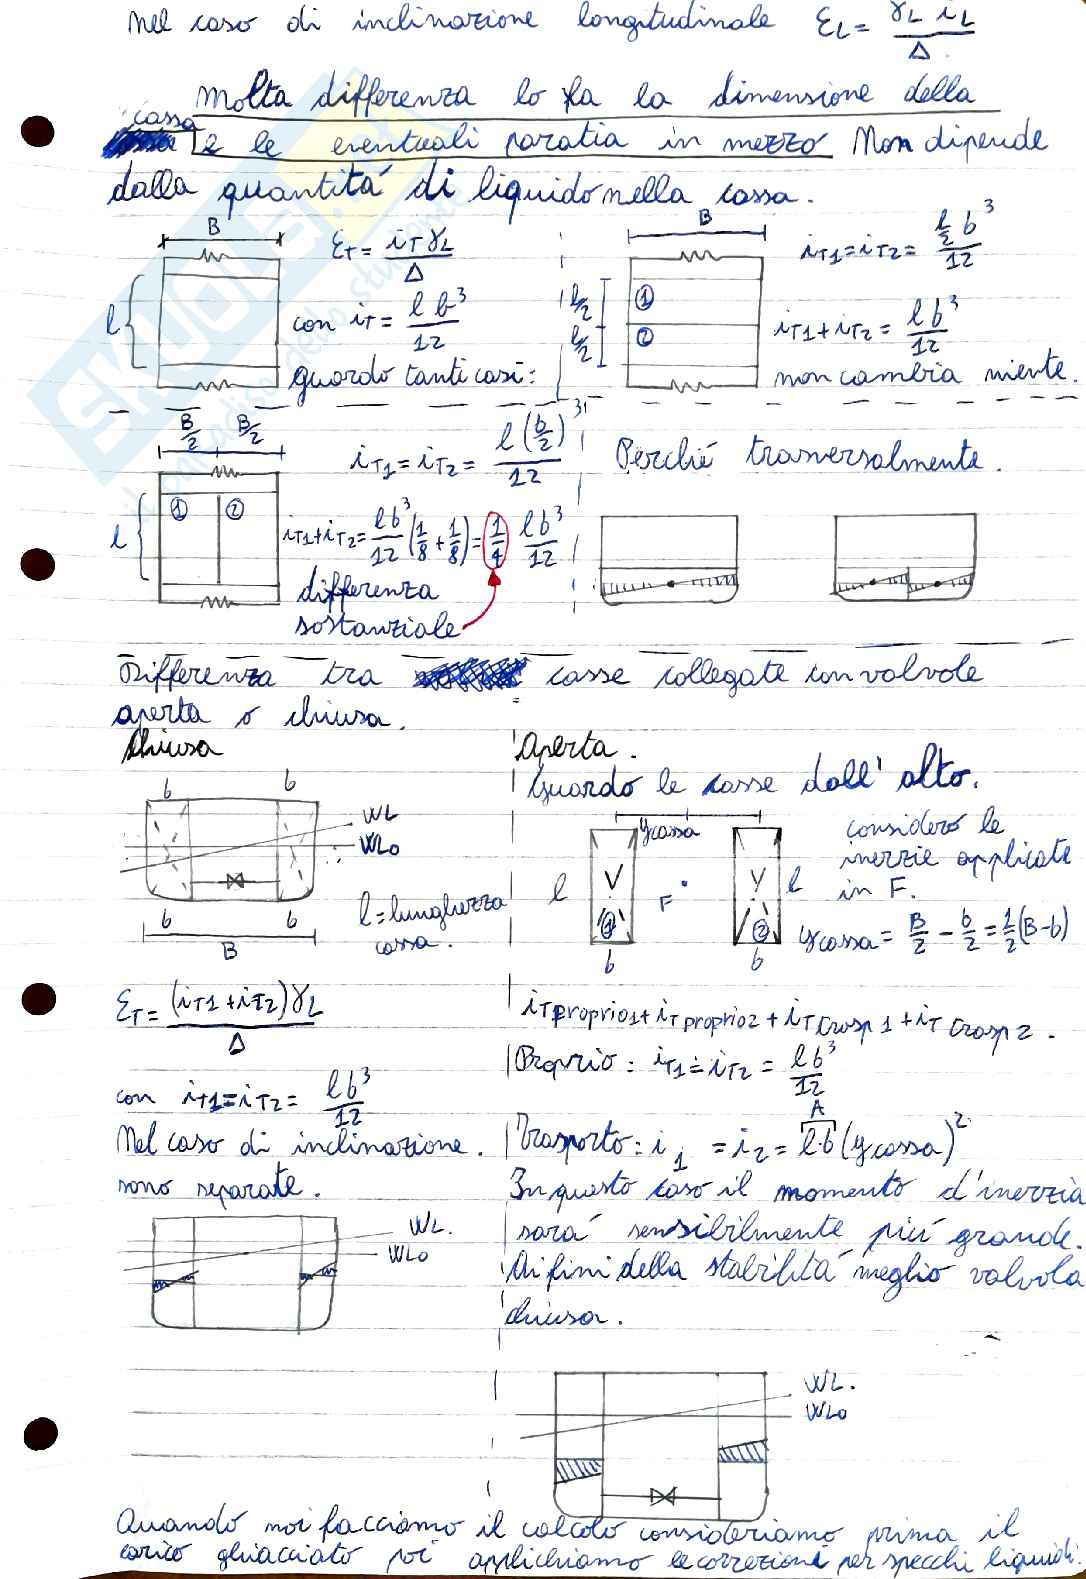 Nel caso di inclinazione longitudinale εL = γL iL / Δ
Molta differenza lo fa la dimensione della
cassa e le eventuali paratia in mezzo Non dipende
dalla quantità di liquido nella cassa.
B
εT = iT γL / Δ
l
con iT = l b³ / 12
guardo tanti casi:
B
iT1 = iT2 = l/2 b³ / 12
l/2
①
l/2
②
iT1 + iT2 = l b³ / 12
non cambia niente.
B/2 B/2
iT1 = iT2 = l (b/2)³ / 12
① ②
l
iT1 + iT2 = l b³ / 12 (1/8 + 1/8) = 1/4 l b³ / 12
differenza
sostanziale
Perché trasversalmente.
Differenza tra casse collegate con valvole
aperta o chiusa.
Chiusa
b b
WL
WL0
b b
B
l = lunghezza
cassa.
εT = (iT1 + iT2) γL / Δ
con iT1 = iT2 = l b³ / 12
Nel caso di inclinazione.
sono separate.
WL.
WL0
Aperta.
Guardo le casse dall'alto.
ycassa
l V F V l
① ②
b b
considero le
inerzie applicate
in F.
ycassa = B/2 - b/2 = 1/2 (B-b)
iT proprio1 + iT proprio2 + iT trasp 1 + iT trasp 2.
Proprio: iT1 = iT2 = l b³ / 12
A
Trasporto: i1 = i2 = l·b (ycassa)²
In questo caso il momento d'inerzia
sarà sensibilmente più grande.
Ai fini della stabilità meglio valvola
chiusa.
WL.
WL0
Quando noi facciamo il calcolo consideriamo prima il
carico ghiacciato poi applichiamo le correzioni per specchi liquidi.
SKUOLA.net
il paradiso dello studente